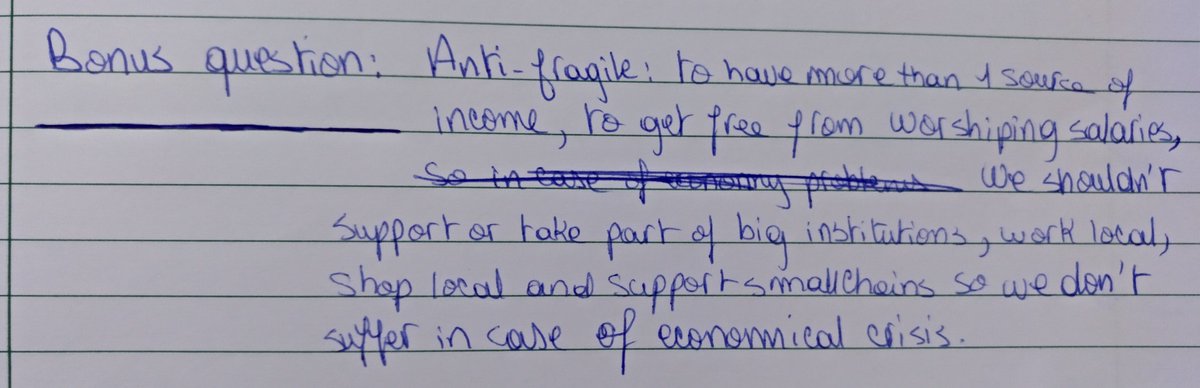 Bonus question: Anti-fragile: to have more than 1 source of
income, to get free from worshiping salaries,
so in case of economy problems We shouldn't
support or take part of big institutions, work local,
shop local and support small chains so we don't
suffer in case of economical crisis.